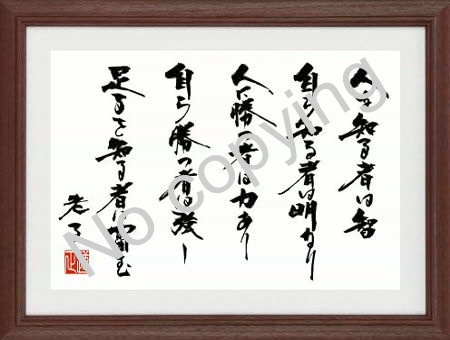 人を知る者は智
自ら知る者は明なり
人に勝つ者は力あり
自ら勝つ者は強し
足るを知る者は富む
老子
No copying